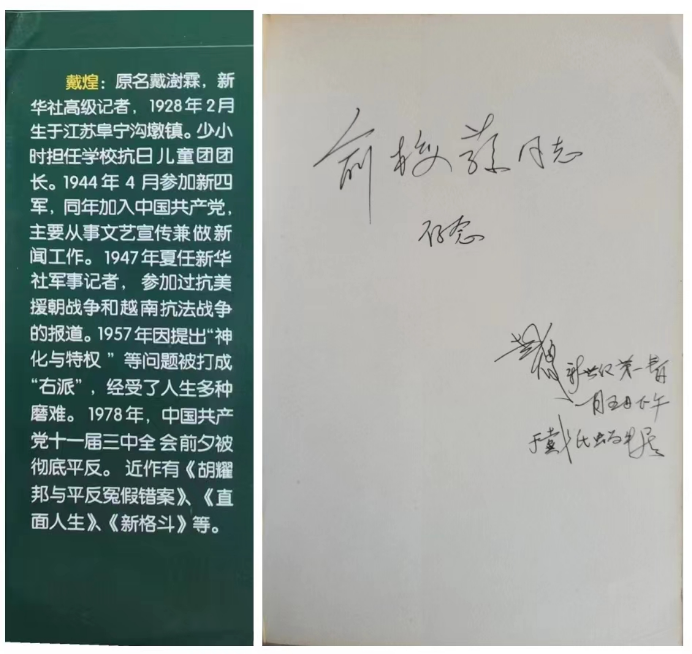 戴煌：原名戴澍霖，新
华社高级记者，1928年2月
生于江苏阜宁沟墩镇。少小
时担任学校抗日儿童团团
长。1944年4月参加新四
军，同年加入中国共产党，
主要从事文艺宣传兼做新
闻工作。1947年夏任新华
社军事记者，参加过抗美
援朝战争和越南抗法战争
的报道。1957年因提出“神
化与特权”等问题被打成
“右派”，经受了人生多种
磨难。1978年，中国共产
党十一届三中全会前夕被
彻底平反。近作有《胡耀
邦与平反冤假错案》、《直
面人生》、《新格斗》等。
俞梅荪同志
存念
戴煌
新世纪第一春
一月五日下午
于